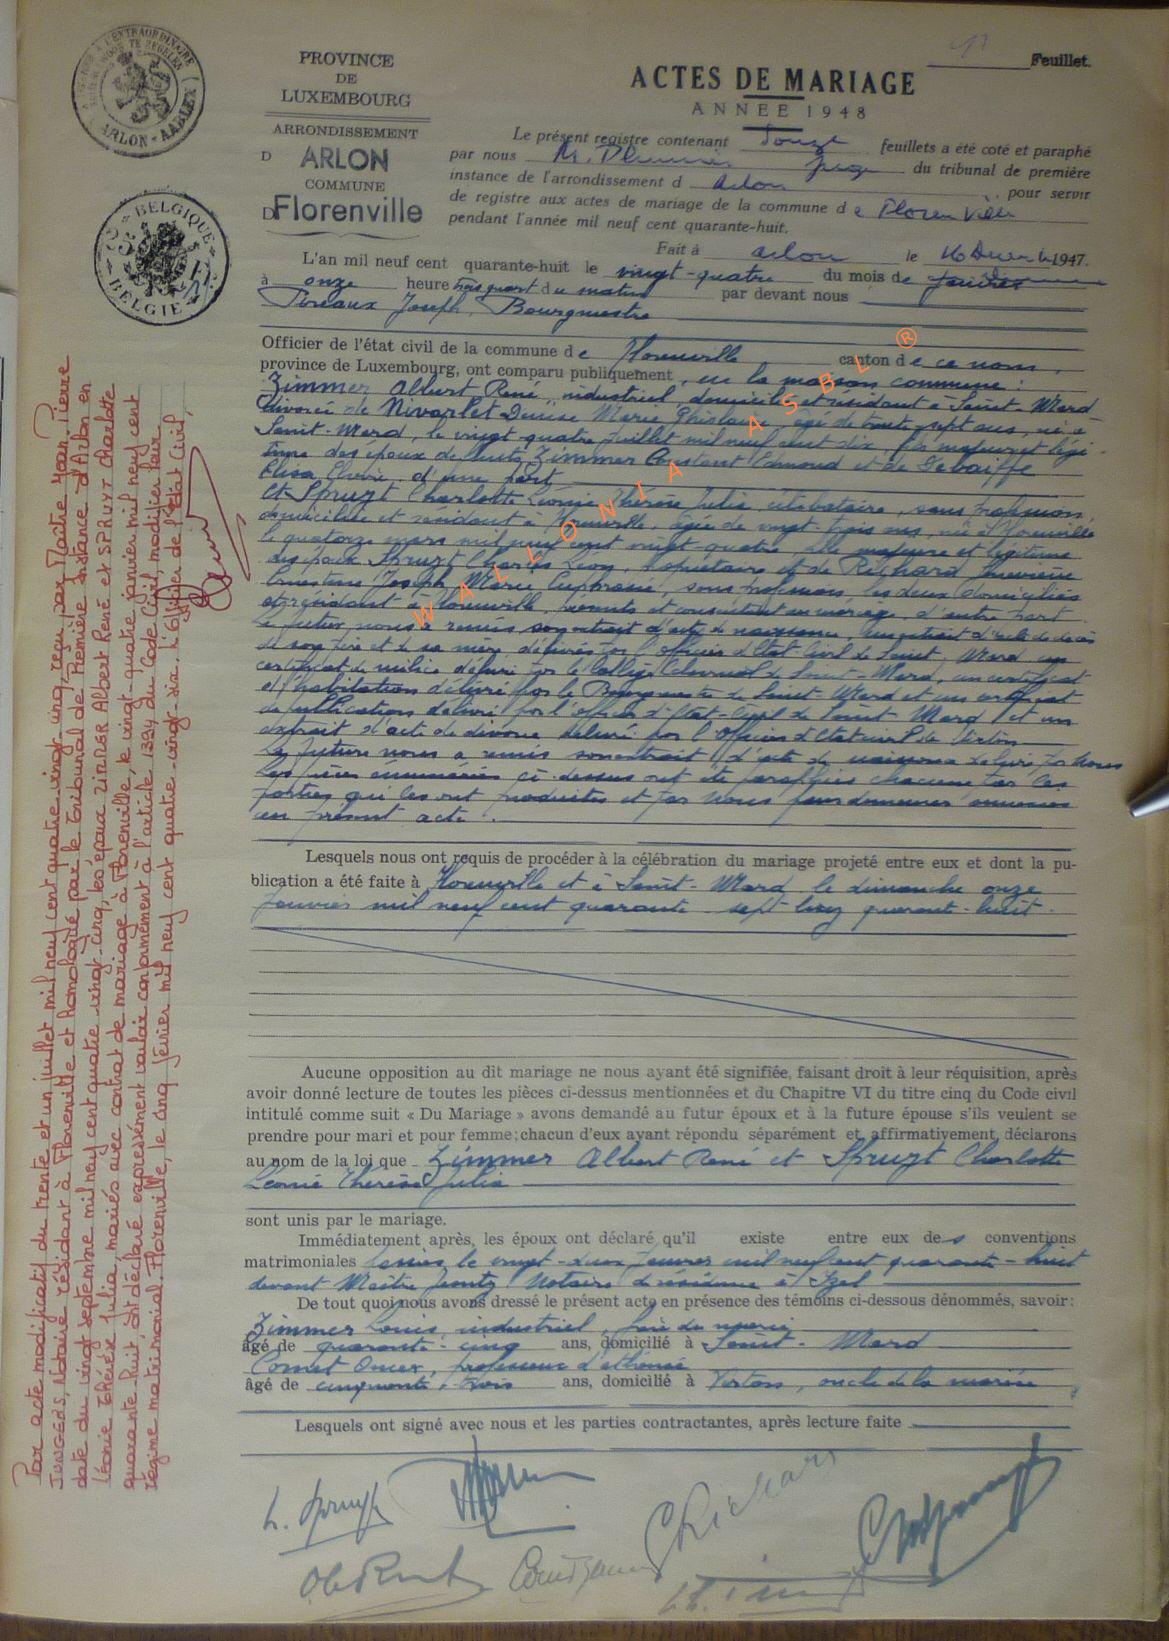 PROVINCE
DE
LUXEMBOURG
ARRONDISSEMENT
D ARLON
COMMUNE
D Florenville
ARLON - AARLEN
BELGIQUE
BELGIE
Feuillet.
ACTES DE MARIAGE
ANNEE 1948
Le présent registre contenant feuillets a été coté et paraphé
par nous Juge du tribunal de première
instance de l'arrondissement d Arlon pour servir
de registre aux actes de mariage de la commune d e Florenville
pendant l'année mil neuf cent quarante-huit.
Fait à Arlon le 16 1947.
L'an mil neuf cent quarante-huit le vingt-quatre du mois de janvier
à onze heure trois quart du matin par devant nous
Joseph, Bourgmestre
Officier de l'état civil de la commune d e Florenville canton d e ce nom,
province de Luxembourg, ont comparu publiquement, en la maison commune :
Zimmer Albert René, industriel, domicilié et résidant à Saint-Mard
divorcé de Nivarlet Denise Marie Ghislaine âgé de trente-sept ans, né à
Saint-Mard, le vingt-quatre juillet mil neuf cent dix, fils majeur et légi-
time des époux de Zimmer Constant Edmond et de
Elisa d'une part
Et Spruyt Charlotte Léonie Thérèse Julia, célibataire, sans profession,
domiciliée et résidant à Florenville, âgée de vingt-trois ans, née à Florenville
le quatorze mars mil neuf cent vingt-quatre fille majeure et légitime
des époux Spruyt Charles Léon, propriétaire et de Richard Geneviève
Ernestine Joseph Marie Euphrasie, sans profession, les deux domiciliés
et résidant à Florenville, présents et consentant au mariage, d'autre part.
Le futur nous a remis son extrait d'acte de naissance, un extrait d'acte de décès
de son père et de sa mère, délivrés par l'officier d'Etat Civil de Saint-Mard, un
certificat de milice délivré par le Collège Echevinal de Saint-Mard, un certificat
d'habitation délivré par le Bourgmestre de Saint-Mard et un certificat
de publications délivré par l'officier d'Etat-Civil de Saint-Mard et un
extrait d'acte de divorce délivré par l'Officier d'Etat civil de Virton
La future nous a remis son extrait d'acte de naissance délivré par nous
Les pièces énumérées ci-dessus ont été paraffées chacune par les
parties qui les ont produites et par Nous pour demeurer annexées
au présent acte.
Lesquels nous ont requis de procéder à la célébration du mariage projeté entre eux et dont la pu-
blication a été faite à Florenville et à Saint-Mard le dimanche onze
janvier mil neuf cent quarante-sept quarante-huit.
Aucune opposition au dit mariage ne nous ayant été signifiée, faisant droit à leur réquisition, après
avoir donné lecture de toutes les pièces ci-dessus mentionnées et du Chapitre VI du titre cinq du Code civil
intitulé comme suit « Du Mariage » avons demandé au futur époux et à la future épouse s'ils veulent se
prendre pour mari et pour femme; chacun d'eux ayant répondu séparément et affirmativement, déclarons
au nom de la loi que Zimmer Albert René et Spruyt Charlotte
Léonie Thérèse Julia
sont unis par le mariage.
Immédiatement après, les époux ont déclaré qu'il existe entre eux des conventions
matrimoniales le vingt-deux janvier mil neuf cent quarante-huit
devant Maître Notaire de résidence à Izel
De tout quoi nous avons dressé le présent acte en présence des témoins ci-dessous dénommés, savoir :
Zimmer Louis, industriel, frère du marié
âgé de quarante-cinq ans, domicilié à Saint-Mard
Oscar, professeur d'athénée
âgé de cinquante-trois ans, domicilié à Virton, oncle de la mariée
Lesquels ont signé avec nous et les parties contractantes, après lecture faite
L. Spruyt
G Richard
Par acte modificatif du trente et un juillet mil neuf cent quatre-vingt-cinq, reçu par Maître Jean-Pierre
JUNGERS, Notaire résidant à Florenville et homologué par le Tribunal de Première Instance d'Arlon en
date du vingt septembre mil neuf cent quatre-vingt-cinq, les époux ZIMMER Albert René et SPRUYT Charlotte
Léonie Thérèse Julia, mariés avec contrat de mariage à Florenville, le vingt-quatre janvier mil neuf cent
quarante-huit, ont déclaré expressément vouloir conformément à l'article 1394 du Code Civil, modifier leur
régime matrimonial. Florenville, le cinq février mil neuf cent quatre-vingt-six. L'Officier de l'Etat Civil,
WALLONIA ASBL ®